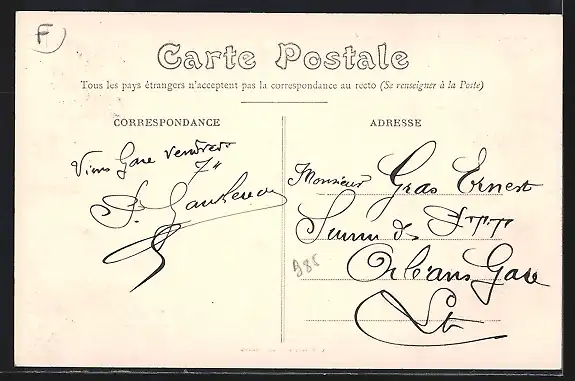 F
Carte Postale
Tous les pays étrangers n'acceptent pas la correspondance au recto (Se renseigner à la Poste)
CORRESPONDANCE
Viens Gare vendredi
7 H
ADRESSE
Monsieur Gras Ernest
des PTT
Orléans Gare
B85